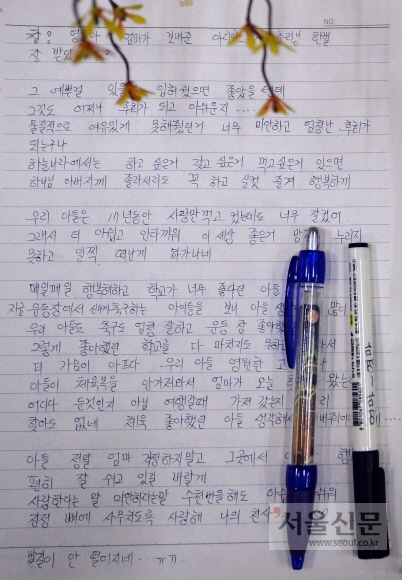 NO.
엄마가 보내준
잘 받았
그 예쁜걸 입혀 줬으면 좋았을
그것도 어찌나 후회가 되고 아쉬운지....
물질적으로 여유있게 못해줬던거 너무 미안하고 엄청난 후회가
되는구나
하늘나라에서는 하고 싶은거 갖고 싶은거 먹고싶은거 있으면
하나님 아버지께 졸라서라도 꼭 하고 살것 즐겨 행복하게
우리 아들은 17년동안 사랑만먹고 컸는데도 너무 잘컸어
그래서 더 아쉽고 안타까워 이 세상 좋은거 누리지
못하고 일찍 떠난게 화가나네
매일매일 행복해하고 학교가 너무 좋다던 아들
지금 운동장에서 신나게축구하는 아이들을 보니 아들 많이
우리 아들도 축구도 엄청 잘하고 운동 참 좋아했
그렇게 좋아했던 학교를 다 마쳐지도 못하
더 가슴이 아프다 우리 아들 영원한 고
아들이 체육복을 안가져와서 엄마가 오늘 왔는
어디다 둔것인지 아님 여행갈때 가져 갔는지
찾아도 없네 체육 좋아했던 아들 생각해서
아들 정말 엄마 걱정하지말고 그곳에서 행
편히 잘 쉬고 있길 바랄게
사랑한다는 말 미안하다는말 수천번을해도 아쉬워
진정 뼈에 사무치도록 사랑해 나의 천사
발길이 안 떨어지네... ㅠㅠ
서울신문
www.seoul.co.kr